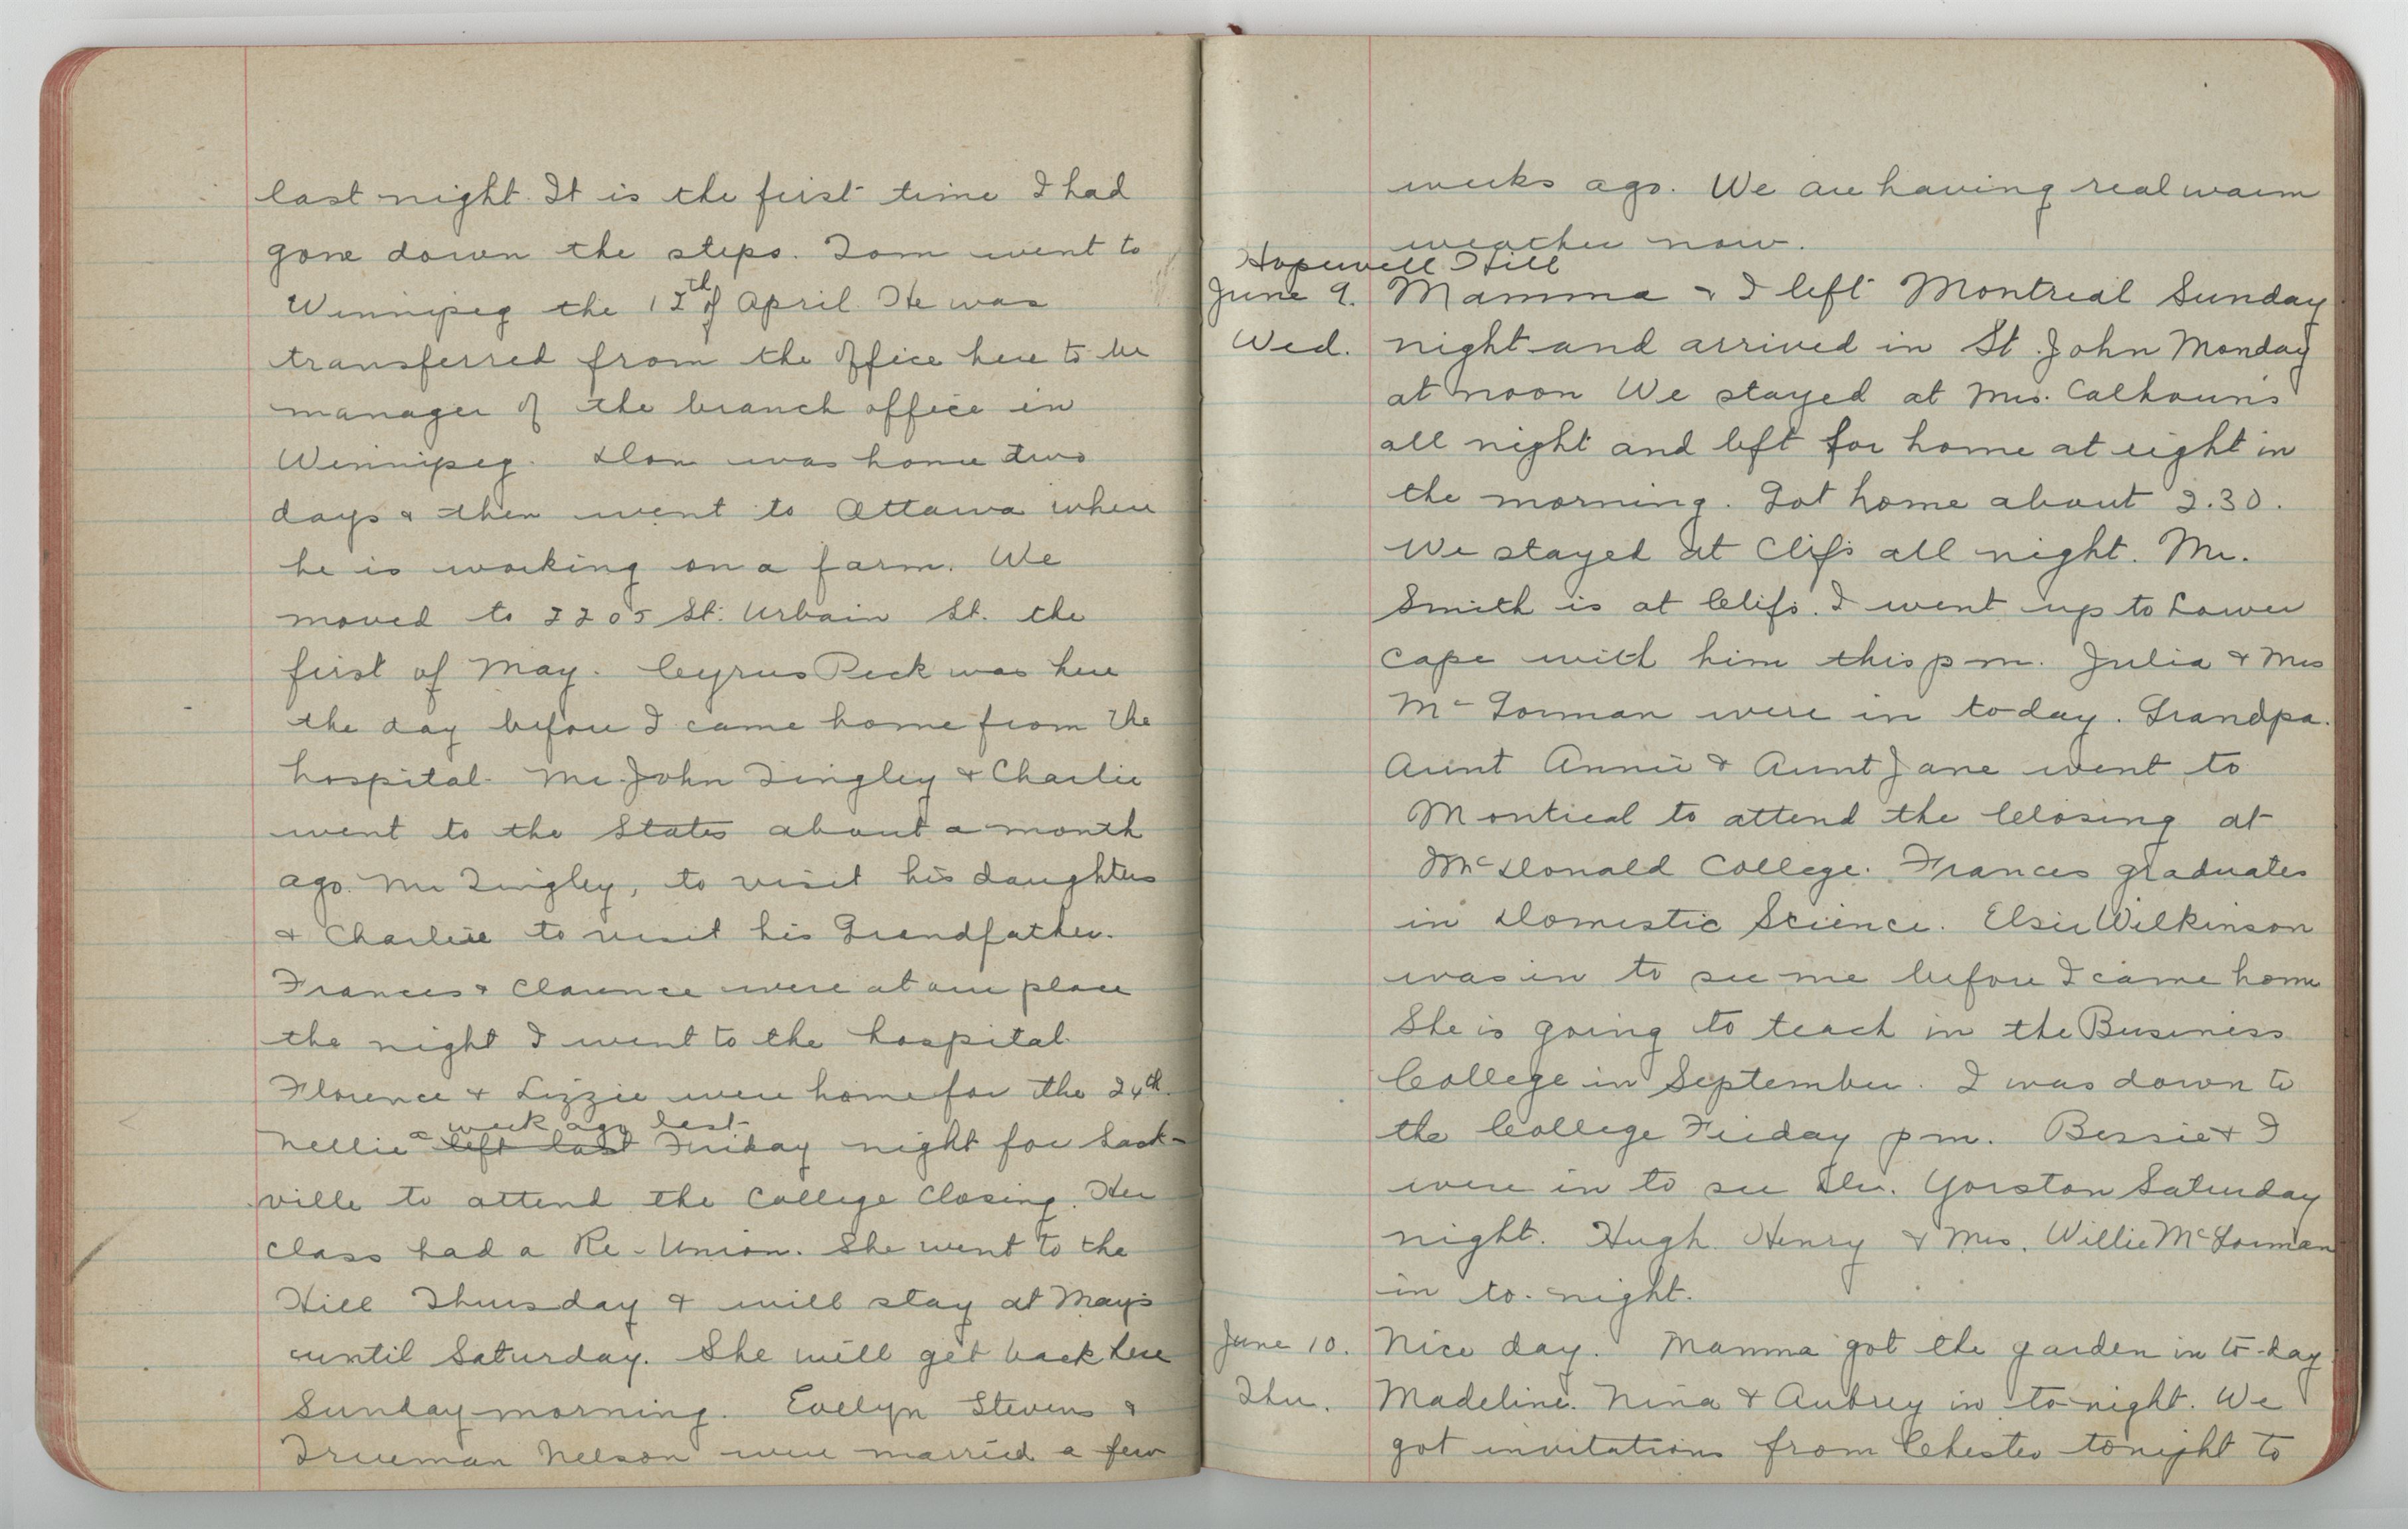 last night. It is the first time I had
gone down the steps. Tom went to
Winnipeg the 12th of April. He was
transferred from the office here to be
manager of the branch office in
Winnipeg. Don was home two
days & then went to Ottawa where
he is working on a farm. We
moved to 2205 St. Urbain St. the
first of May. Cyrus Peck was here
the day before I came home from the
hospital. Mr. John Tingley & Charlie
went to the States about a month
ago. Mr Tingley, to visit his daughters
& Charlie to visit his Grandfather.
Frances & Clarence were at our place
the night I went to the hospital.
Florence & Lizzie were home for the 24th.
a week ago last
Nellie left last Friday night for Sack-
ville to attend the College Closing. Her
class had a Re-Union. She went to the
Hill Thursday & will stay at May's
until Saturday. She will get back here
Sunday morning. Evelyn Stevens &
Trueman Nelson were married a few
weeks ago. We are having real warm
weather now.
Hopewell Hill
June 9. Mamma & I left Montreal Sunday
Wed. night and arrived in St. John Monday
at noon We stayed at Mrs. Calhoun's
all night and left for home at eight in
the morning. Got home about 2.30.
We stayed at Clif's all night. Mr.
Smith is at Clif's. I went up to Lower
Cape with him this p m. Julia & Mrs
McGorman were in today. Grandpa.
Aunt Annie & Aunt Jane went to
Montreal to attend the Closing at
McDonald College. Frances graduates
in Domestic Science. Elsie Wilkinson
was in to see me before I came home
She is going to teach in the Business
College in September. I was down to
the College Friday p m. Bessie & I
were in to see Dr. Yorston Saturday
night. Hugh. Henry & Mrs. Willie McGorman
in to-night.
June 10. Nice day. Mamma got the garden in to-day
Thu. Madeline. Nina & Aubrey in to-night. We
got invitations from Chester tonight to